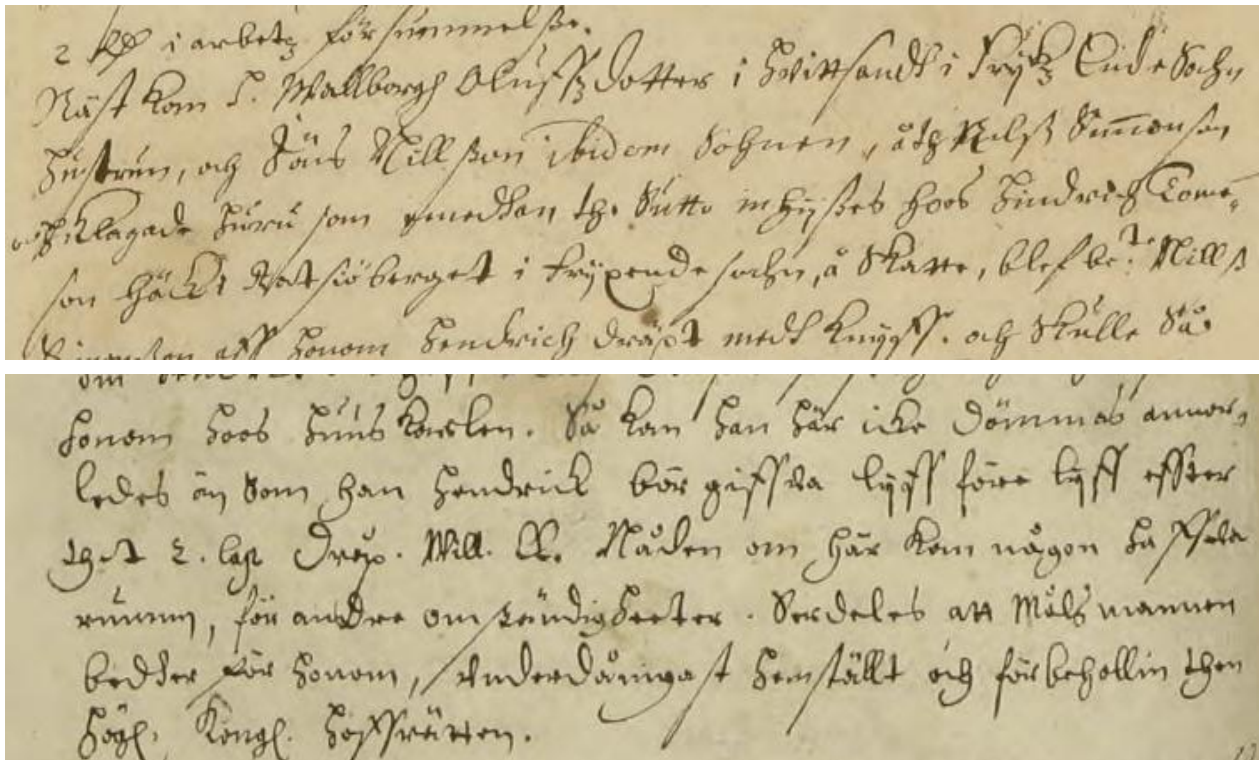 2 i arbetz försummelße.
Näst kom H. Wallborgh Oluffzdotter i Hvittsandh i Frykz Ende Sochn
Hustrun, och Jöns Nillßon ibidem Sohnen, åth Nilß Simonson
och klagade huru som emedhan the Sutto inhyßes hoos Hindrich Tome-
son Häckt Rattsiöberget i Fryxende sochn, å Skatte, blef be:te Nillß
Simonson aff honom Hendrich dräpt medh knijff. och skulle Så
honom hoos huus karlen. Så kan han här icke dömmas annor-
ledes än Som han Hendrick bör giffwa lijff före lijff effter
thet 2. Cap Drep. Will. LL. Nåden om här kan någon haffwa
rumm, för andre omständigheeter. Serdeles att Målsmannen
bedder för honom, underdånigast hemstält och förbehollin then
högl. Kongl. hoffrätten.